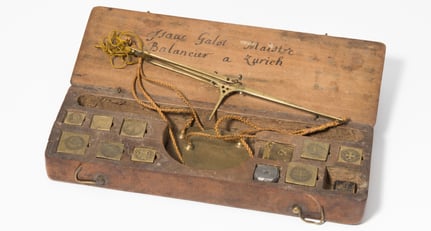 Isaac Galot Maistre
Balancier a Zurich